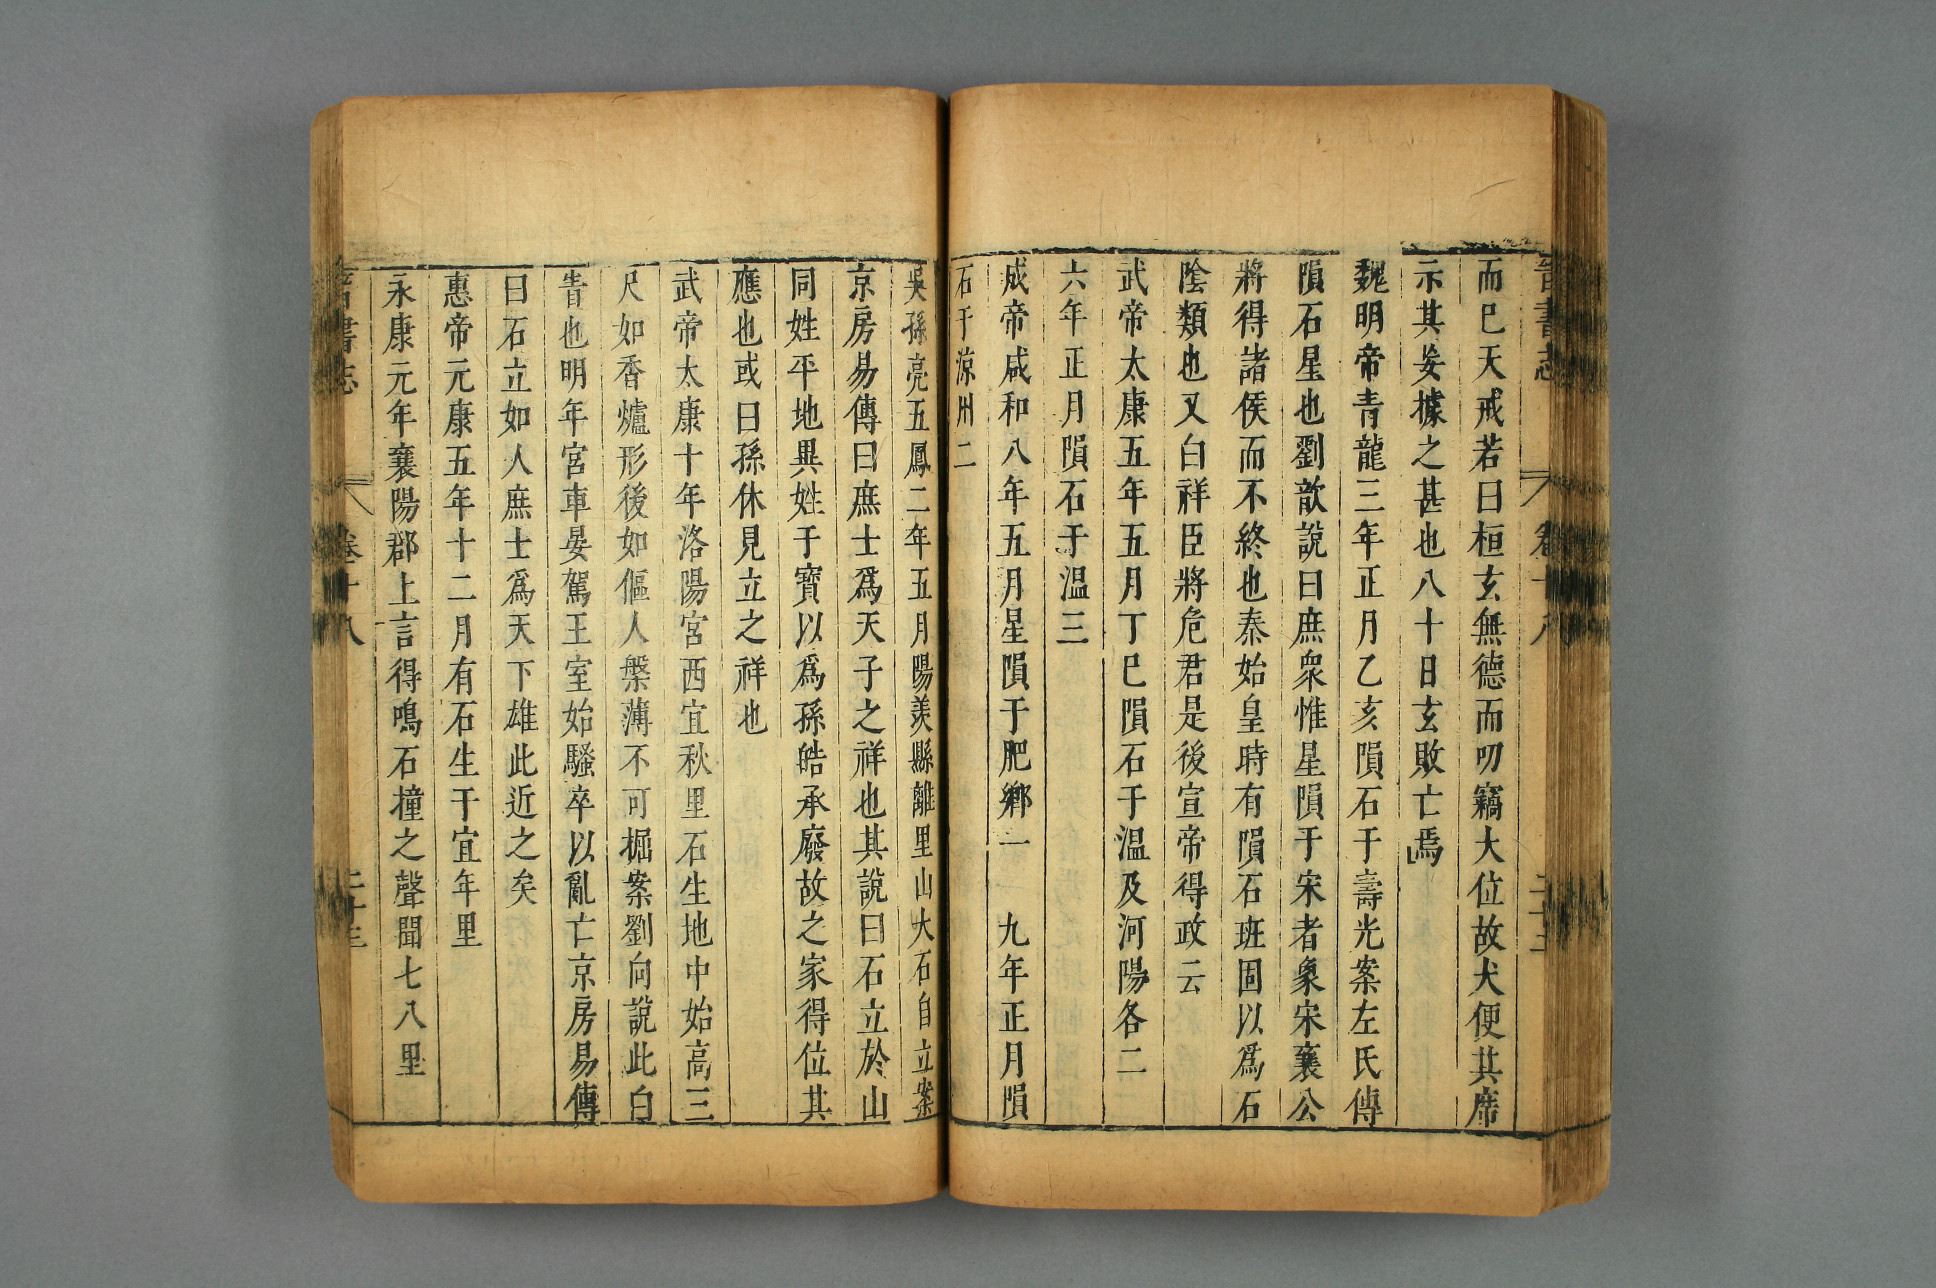 晉書志
卷十八
而巳天戒若曰桓玄無德而叨竊大位故犬便其席
示其妄據之甚也八十日玄敗亡焉
魏明帝青龍三年正月乙亥隕石于壽光案左氏傳
隕石星也劉歆說曰庶衆惟星隕于宋者象宋襄公
將得諸侯而不終也秦始皇時有隕石班固以爲石
陰類也又白祥臣將危君是後宣帝得政云
武帝太康五年五月丁巳隕石于温及河陽各二
六年正月隕石于温三
成帝咸和八年五月星隕于肥鄉一　九年正月隕
石于涼州二
吳孫亮五鳳二年五月陽羨縣離里山大石自立案
京房易傳曰庶士爲天子之祥也其說曰石立於山
同姓平地異姓于寶以爲孫皓承廢故之家得位其
應也或曰孫休見立之祥也
武帝太康十年洛陽宮西宜秋里石生地中始高三
尺如香爐形後如傴人槃薄不可掘案劉向說此白
眚也明年宮車晏駕王室始騷卒以亂亡京房易傳
曰石立如人庶士爲天下雄此近之矣
惠帝元康五年十二月有石生于宜年里
永康元年襄陽郡上言得鳴石撞之聲聞七八里
晉書志
卷十八
二十三